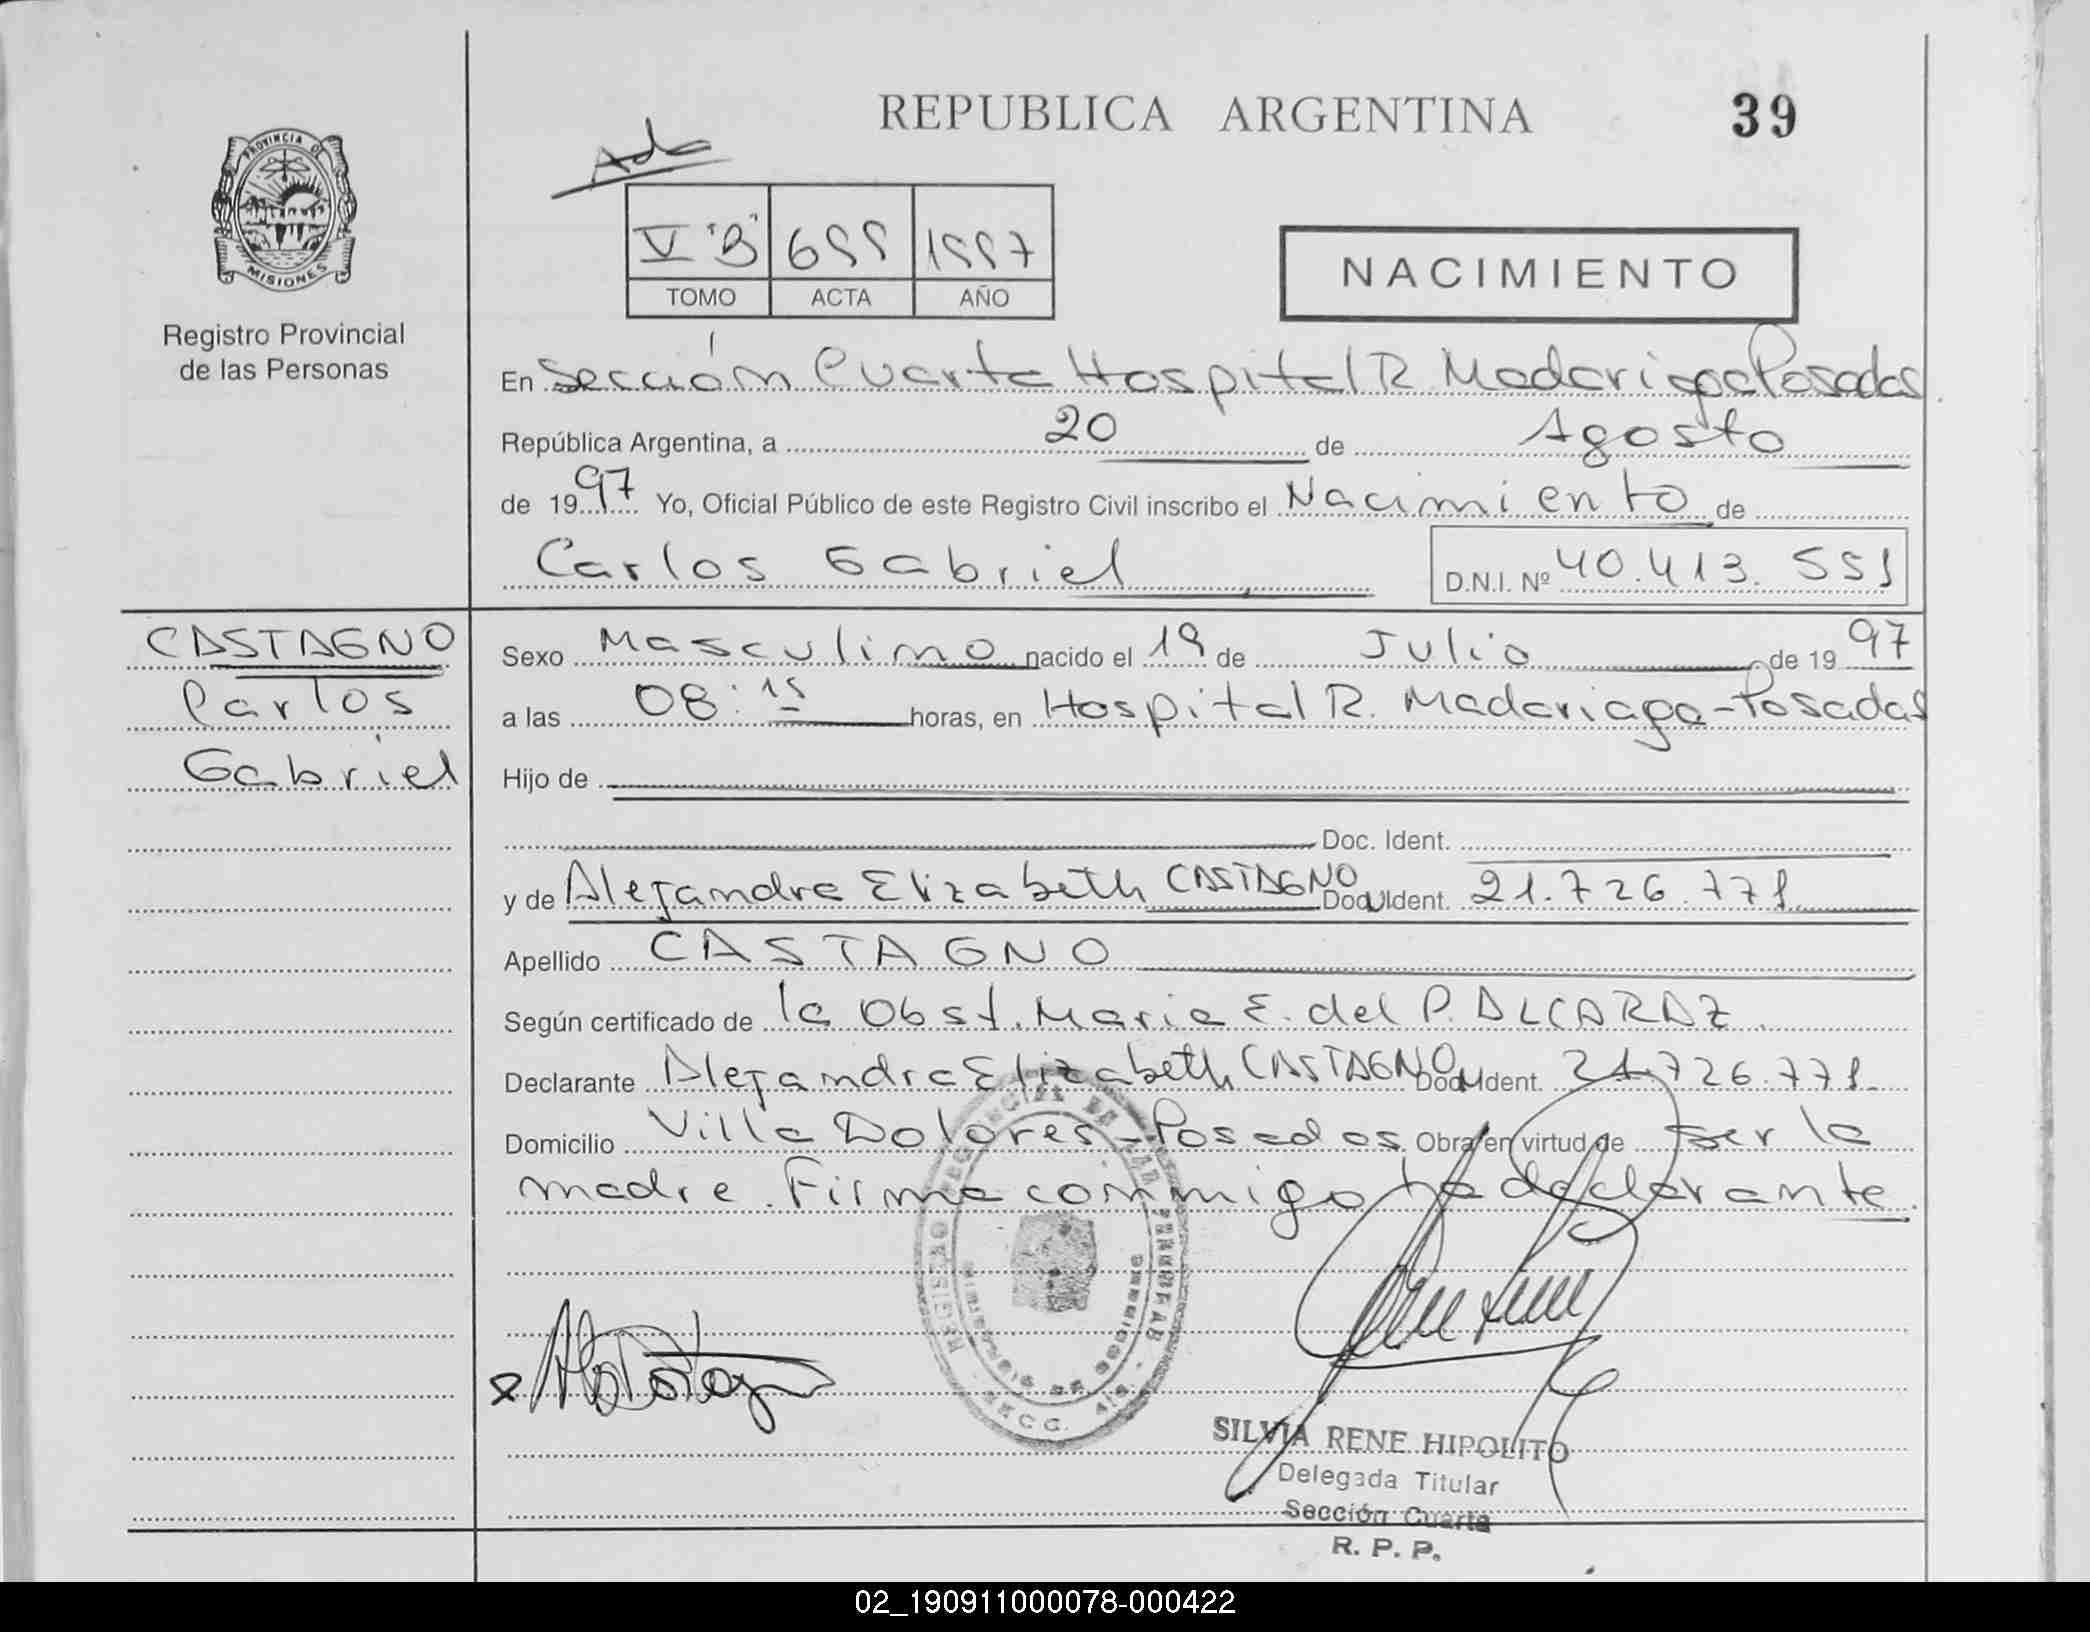 REPUBLICA ARGENTINA
39
PROVINCIA DE
MISIONES
Registro Provincial
de las Personas
V "B" 699 1997
TOMO ACTA AÑO
NACIMIENTO
En Sección Cuarta Hospital R. Madariaga Posadas
República Argentina, a 20 de Agosto
de 1997 Yo, Oficial Público de este Registro Civil inscribo el Nacimiento de
Carlos Gabriel
D.N.I. Nº 40.413.
CASTAGNO
Carlos
Gabriel
Sexo Masculino nacido el 19 de Julio de 1997
a las 08:15 horas, en Hospital R. Madariaga - Posadas
Hijo de
Doc. Ident.
y de Alejandra Elizabeth CASTAGNO Doc. Ident. 21.726.771
Apellido CASTAGNO
Según certificado de la Obst. Maria E. del P. ALCARAZ
Declarante Alejandra Elizabeth CASTAGNO Doc. Ident. 21.726.771
Domicilio Villa Dolores - Posadas. Obra en virtud de ser la
madre. Firma conmigo la declarante.
SILVIA RENE HIPOLITO
Delegada Titular
Sección Cuarta
R. P. P.
02_190911000078-000422